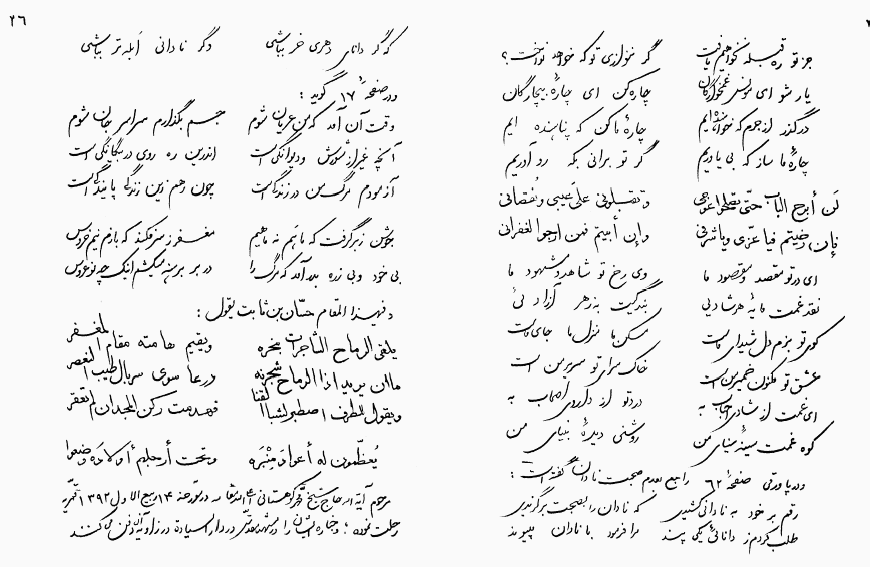 جز تو ره قبله نخواهیم یافت گر ننوازی تو که خواهد نواخت؟
یار شو ای مونس غمخوارگان چاره کن ای چارهٔ بیچارگان
درگذر از جرم که خواهنده ایم چارهٔ ما کن که پناهنده ایم
چارهٔ ما ساز که بی یاوریم گر تو برانی بکه رو آوریم
لن أبرح الباب حتّی تصلحوا عوجی و تقبلونی علی عیبی و نقصانی
فإن رضیتم فیا عزّی ویا شرفی وإن أبیتم فمن ارجوا لغفرانی
ای در تو مقصد و مقصود ما وی رخ تو شاهد و مشهود ما
نقد غمت مایهٔ هر شادیی بندگیت به زهر آزادیی
کوی تو بزم دل شیدای ماست مسکن ما منزل ما جای ماست
عشق تو مکنون ضمیر من است خاک سرای تو سریر من است
ای غمت از شادی احباب به درد تو از داروی اصحاب به
کوه غمت سینهٔ سینای من روشنی دیدهٔ بینای من
در پاورقی صفحهٔ ۶۲ راجع بعدم صحبت نادان گفته است:
رقم بر خود به نادانی کشیدی که نادان را بصحبت برگزیدی
طلب کردم ز دانائی یکی پند مرا فرمود با نادان مپیوند
۴۶
که گر دانای دهری خر بباشی وگر نادانی ابله تر بباشی
ودر صفحهٔ ۱۷ گوید:
وقت آن آمد که من عریان شوم جسم بگذارم سراسر جان شوم
آنچه غیر از شورش و دیوانگی است اندرین ره روی در بیگانگی است
آزمودم مرگ من در زندگی است چون رهم زین زندگی پایندگی است
جوشن ز بر گرفت که ماهم نه ماهیم مغفر ز سر فکند که بازم نیم خروس
بی خود و بی زره بدر آمد که مرگ را در بر برهنه میکشم اینک چو نوعروس
وفی هذا المقام حسّان بن ثابت یقول:
یلقی الرماح الشاجرات بنحره ویقیم هامته مقام المغفر
ما ان یرید اذا الرماح شجرنه درعا سوی سربال طیب العنصر
ویقول للطرف اصطبر لشبا القنا فهدمت رکن المجد ان لم تعقر
یُعظّمون له أعوادَ مِنْبَره وتحت أرجلهم أولاده وضعوا
مرحوم آیة الله حاج شیخ کوهستانی در مورخهٔ ۱۴ ربیع الاول ۱۳۹۲ قمری
رحلت نموده؛ و جنازهٔ ایشان را در مشهد مقدّس در دار السیادة در زاویهٔ آن دفن می کنند